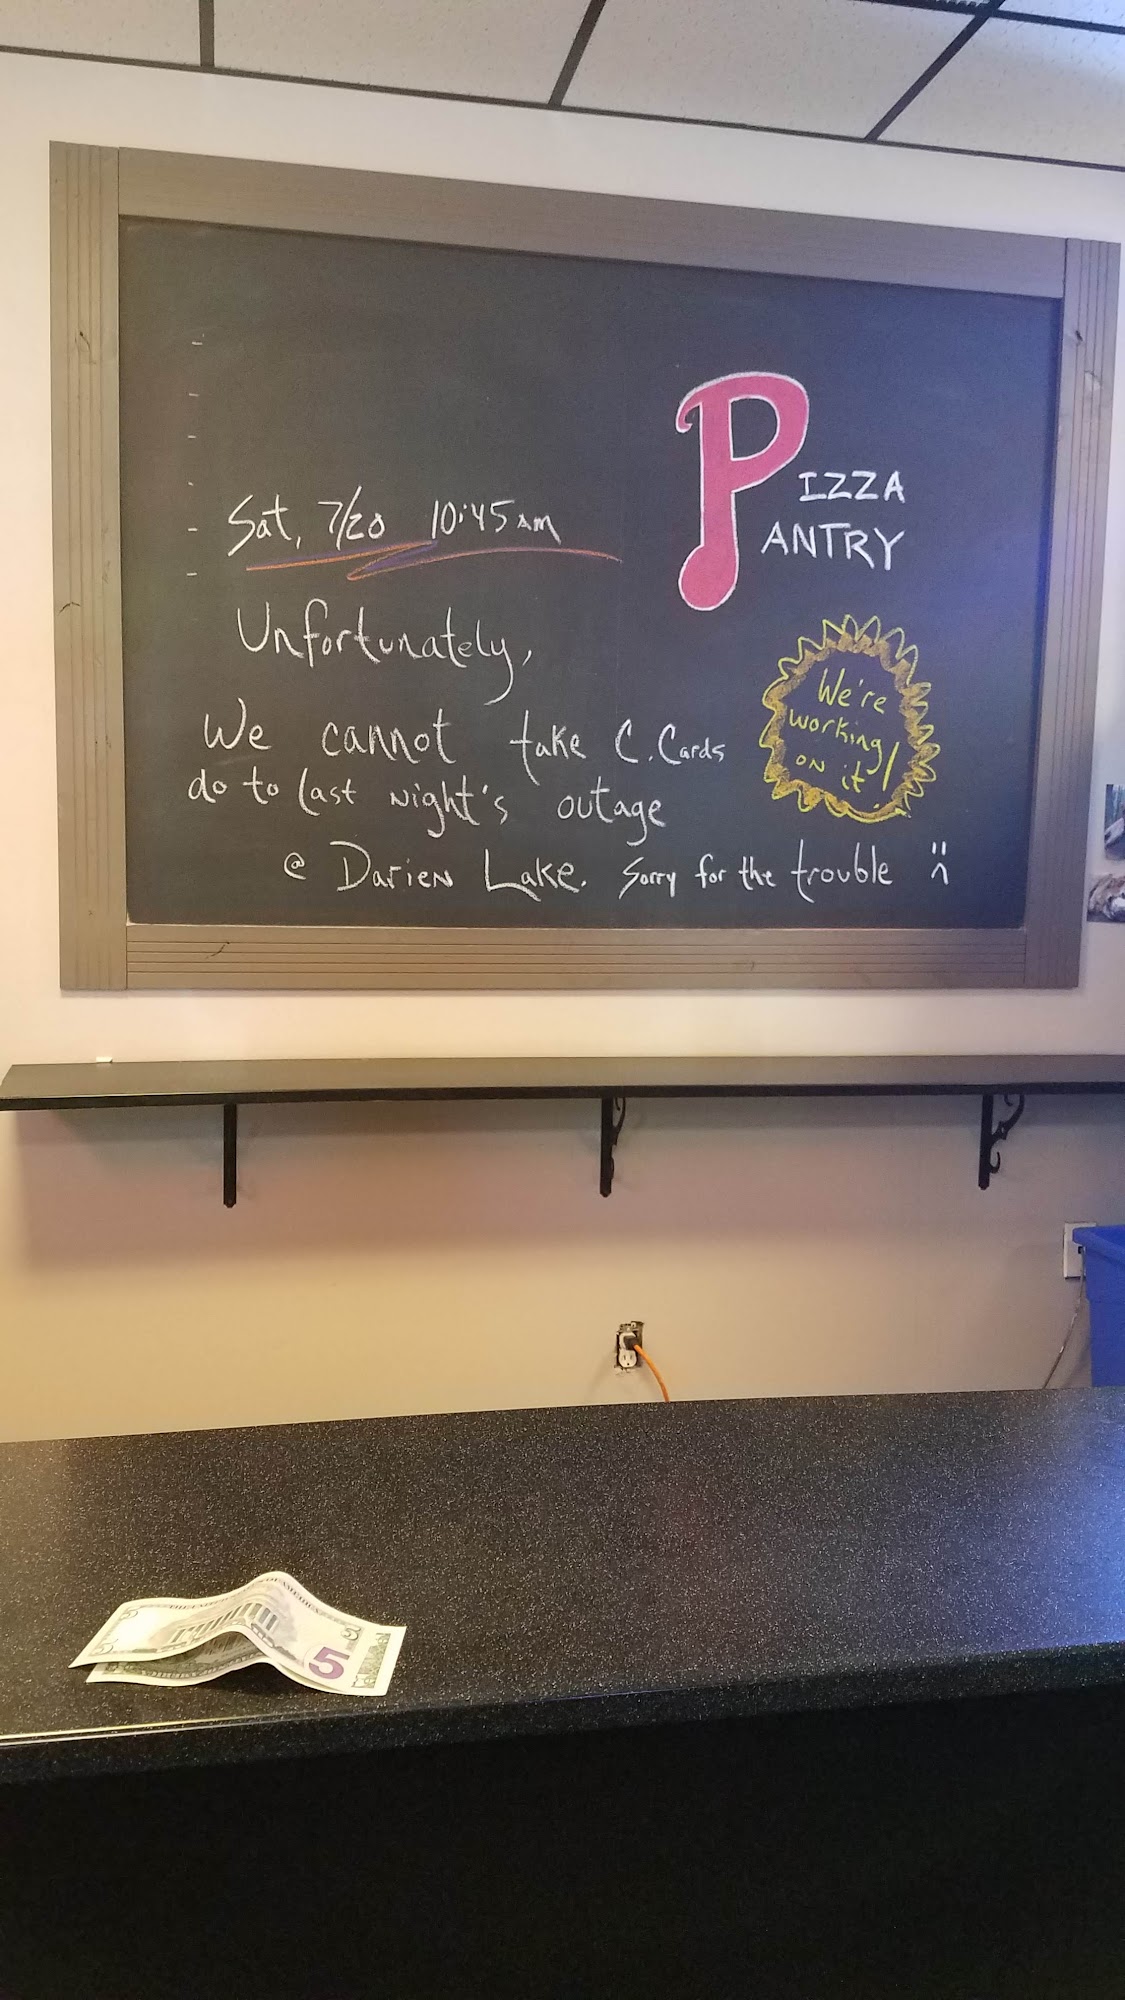 Sat, 7/20 10:45am
Unfortunately,
We cannot take C.Cards
do to last night's outage
@ Darien Lake. Sorry for the trouble
PIZZA
PANTRY
We're
working
on it!
5
5
5
5